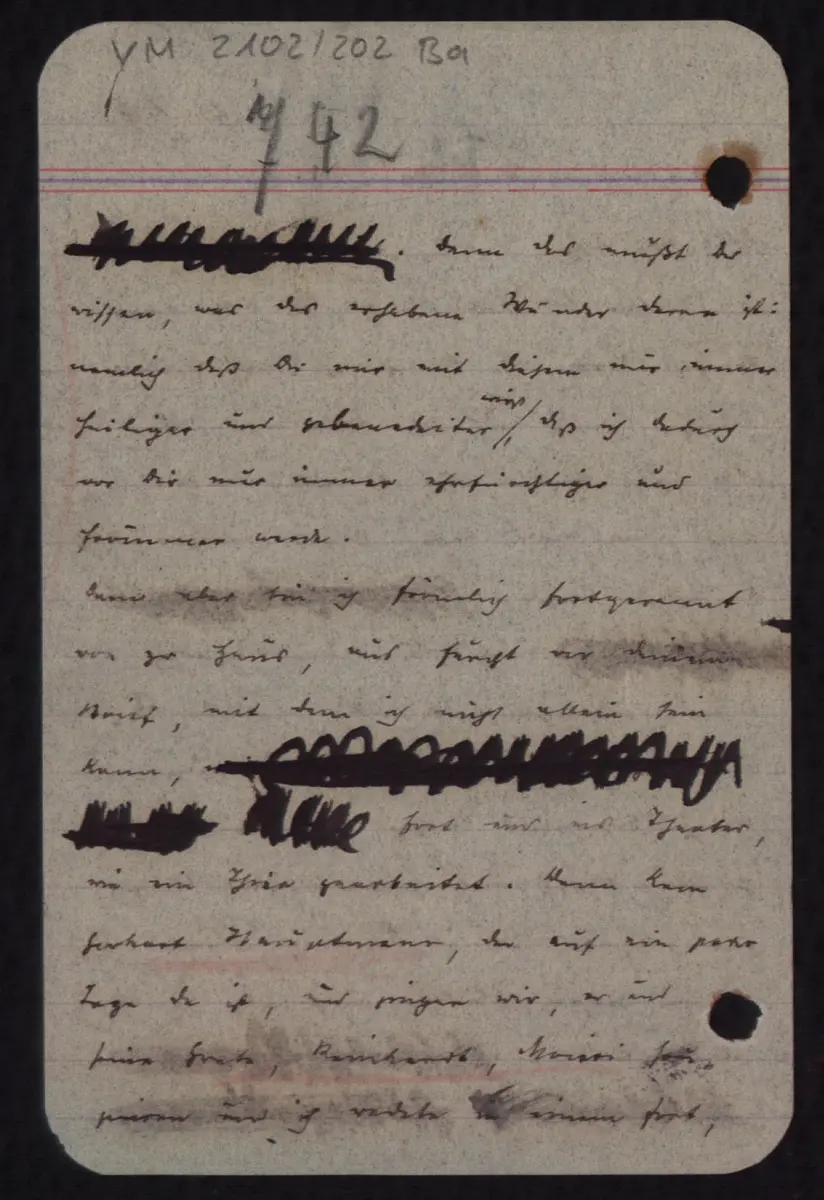 VM 2102/202 Ba
742
. denn das mußt du
wissen, was das erhabene Wunder daran ist:
nemlich daß Du mir mit diesem nur immer
wirst
heiliger und gebenedeiter, daß ich dadurch
vor Dir nur immer ehrfürchtiger und
frömmer werde.
Dann aber bin ich förmlich fortgerannt
von zu Haus, aus Furcht vor deinem
Brief, mit dem ich nicht allein sein
kann,
fort und ins Theater,
wie ein Thier gearbeitet. Dann kam
Gerhart Hauptmann, der auf ein paar
Tage da ist, und gingen wir, er und
seine Grete, Reinhardt, Moissi
und ich redete in einem fort,